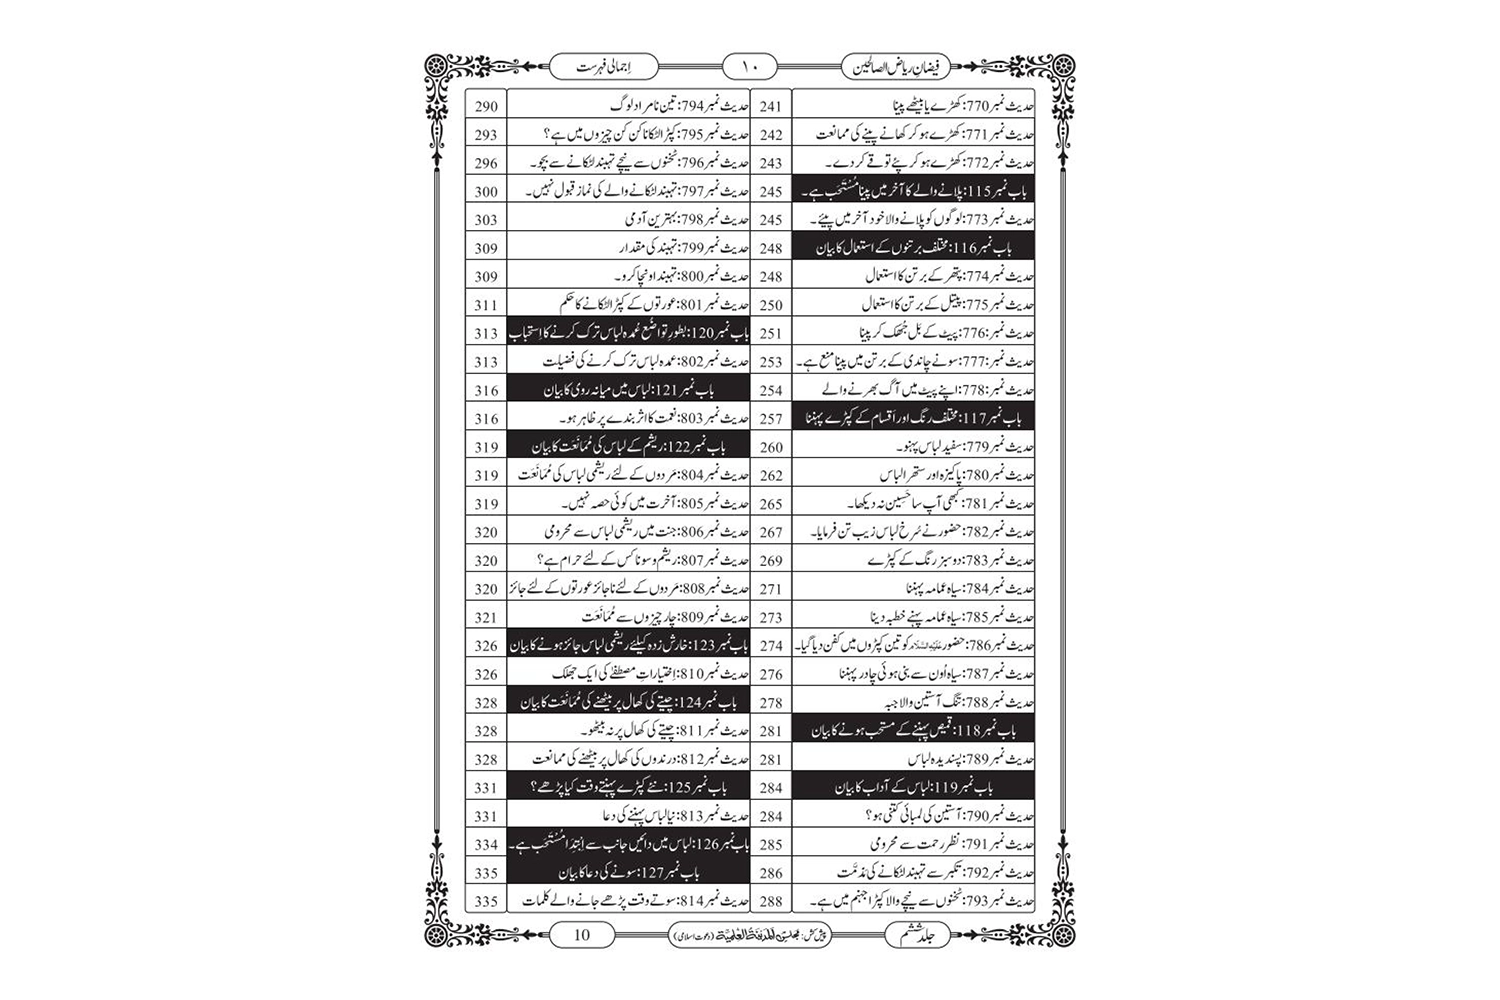 فیضانِ ریاض الصالحین
۱۰
اِجمالی فہرست
حدیث نمبر770: کھڑے یا بیٹھے پینا 241
حدیث نمبر771: کھڑے ہو کر کھانے پینے کی ممانعت 242
حدیث نمبر772: کھڑے ہو کر پئے تو قے کر دے۔ 243
باب نمبر115: پلانے والے کا آخر میں پینا مُسْتَحَب ہے۔ 245
حدیث نمبر773: لوگوں کو پلانے والا خود آخر میں پیئے۔ 245
باب نمبر116: مختلف برتنوں کے استعمال کا بیان 248
حدیث نمبر774: پتھر کے برتن کا استعمال 248
حدیث نمبر775: پیتل کے برتن کا استعمال 250
حدیث نمبر776: پیٹ کے بَل جُھک کر پینا 251
حدیث نمبر777: سونے چاندی کے برتن میں پینا منع ہے۔ 253
حدیث نمبر778: اپنے پیٹ میں آگ بھرنے والے 254
باب نمبر117: مختلف رنگ اور اَقسام کے کپڑے پہننا 257
حدیث نمبر779: سفید لباس پہنو۔ 260
حدیث نمبر780: پاکیزہ اور ستھرا لباس 262
حدیث نمبر781: کبھی آپ سا حَسِین نہ دیکھا۔ 265
حدیث نمبر782: حضور نے سُرخ لباس زیب تن فرمایا۔ 267
حدیث نمبر783: دو سبز رنگ کے کپڑے 269
حدیث نمبر784: سیاہ عمامہ پہننا 271
حدیث نمبر785: سیاہ عمامہ پہنے خطبہ دینا 273
حدیث نمبر786: حضور عَلَیْہِ السَّلَام کو تین کپڑوں میں کفن دیا گیا۔ 274
حدیث نمبر787: سیاہ اُون سے بنی ہوئی چادر پہننا 276
حدیث نمبر788: تنگ آستین والا جبہ 278
باب نمبر118: قمیص پہننے کے مستحب ہونے کا بیان 281
حدیث نمبر789: پسندیدہ لباس 281
باب نمبر119: لباس کے آداب کا بیان 284
حدیث نمبر790: آستین کی لمبائی کتنی ہو؟ 284
حدیث نمبر791: نظر رحمت سے محرومی 285
حدیث نمبر792: تکبر سے تہبند لٹکانے کی مَذمَّت 286
حدیث نمبر793: ٹخنوں سے نیچے والا کپڑا جہنم میں ہے۔ 288
حدیث نمبر794: تین نامراد لوگ 290
حدیث نمبر795: کپڑا لٹکانا کن کن چیزوں میں ہے؟ 293
حدیث نمبر796: ٹخنوں سے نیچے تہبند لٹکانے سے بچو۔ 296
حدیث نمبر797: تہبند لٹکانے والے کی نماز قبول نہیں۔ 300
حدیث نمبر798: بہترین آدمی 303
حدیث نمبر799: تہبند کی مقدار 309
حدیث نمبر800: تہبند اونچا کرو۔ 309
حدیث نمبر801: عورتوں کے کپڑا لٹکانے کا حکم 311
باب نمبر120: بطورِ تواضُع عُمدہ لباس ترک کرنے کا اِستحباب 313
حدیث نمبر802: عمدہ لباس ترک کرنے کی فضیلت 313
باب نمبر121: لباس میں میانہ روی کا بیان 316
حدیث نمبر803: نعمت کا اثر بندے پر ظاہر ہو۔ 316
باب نمبر122: ریشم کے لباس کی مُمَانَعَت کا بیان 319
حدیث نمبر804: مَردوں کے لئے ریشمی لباس کی مُمَانَعَت 319
حدیث نمبر805: آخرت میں کوئی حصہ نہیں۔ 319
حدیث نمبر806: جنت میں ریشمی لباس سے محرومی 320
حدیث نمبر807: ریشم و سونا کس کے لئے حرام ہے؟ 320
حدیث نمبر808: مَردوں کے لئے ناجائز عورتوں کے لئے جائز 320
حدیث نمبر809: چار چیزوں سے مُمَانَعَت 321
باب نمبر123: خارش زدہ کیلئے ریشمی لباس جائز ہونے کا بیان 326
حدیث نمبر810: اِختیاراتِ مصطفےٰ کی ایک جھلک 326
باب نمبر124: چیتے کی کھال پر بیٹھنے کی مُمَانَعَت کا بیان 328
حدیث نمبر811: چیتے کی کھال پر نہ بیٹھو۔ 328
حدیث نمبر812: درندوں کی کھال پر بیٹھنے کی ممانعت 328
باب نمبر125: نئے کپڑے پہنتے وقت کیا پڑھے؟ 331
حدیث نمبر813: نیا لباس پہننے کی دعا 331
باب نمبر126: لباس میں دائیں جانب سے اِبْتِدَا مُسْتَحَب ہے۔ 334
باب نمبر127: سونے کی دعا کا بیان 335
حدیث نمبر814: سوتے وقت پڑھے جانے والے کلمات 335
جلد ششم
پیش کش: مجلس المدینۃ العلمیۃ (دعوت اسلامی)
10